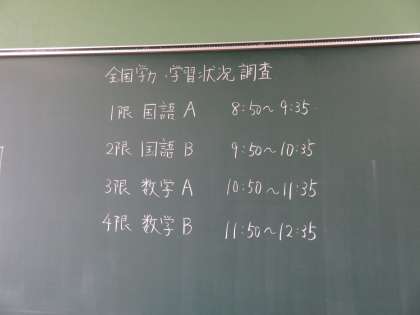 全国学力・学習状況調査
1限 国語 A 8:50〜9:35
2限 国語 B 9:50〜10:35
3限 数学 A 10:50〜11:35
4限 数学 B 11:50〜12:35